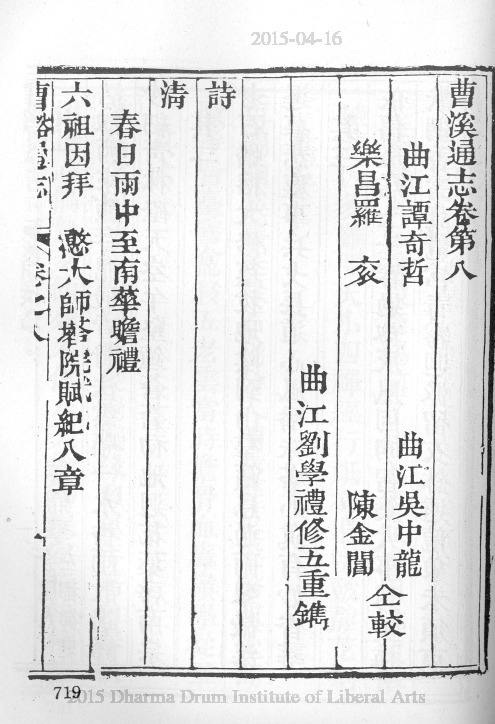 2015-04-16
曹溪通志卷第八
曲江譚奇哲 曲江吳中龍
樂昌羅 袞 陳金閶 仝較
曲江劉學禮修五重鐫
詩
清
春日雨中至南華瞻禮
六祖因拜 憨大師塔院賦紀八章
719
2015 Dharma Drum Institute of Liberal Arts